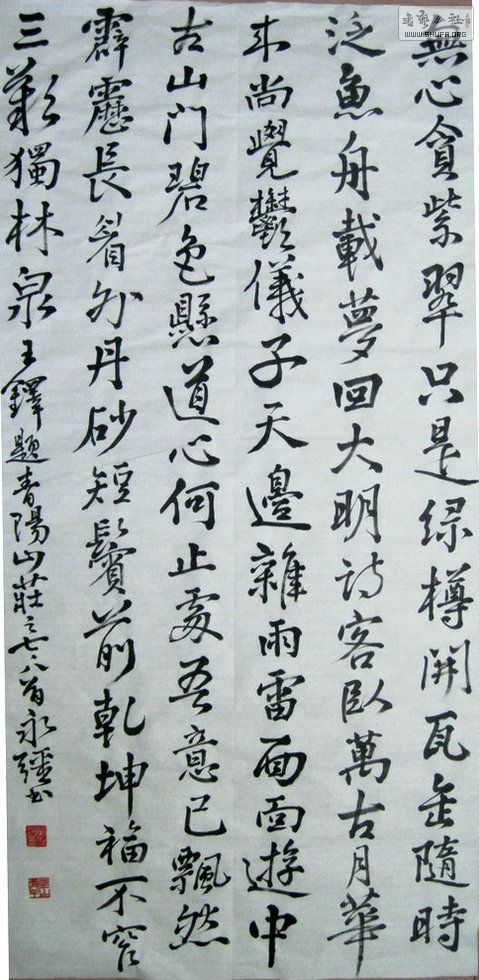 無心貪紫翠只是綠樽開瓦缶隨時
泛魚舟載夢回大明詩客臥萬古月華
來尚覺鬱儀子天邊雜雨雷面面遊中
古山門碧色懸道心何止處吾意已飄然
霹靂長着外丹砂短鬢前乾坤福不窄
三歎獨林泉王鐸題青陽山莊之七八首永疆书
WWW.SHUFA.ORG